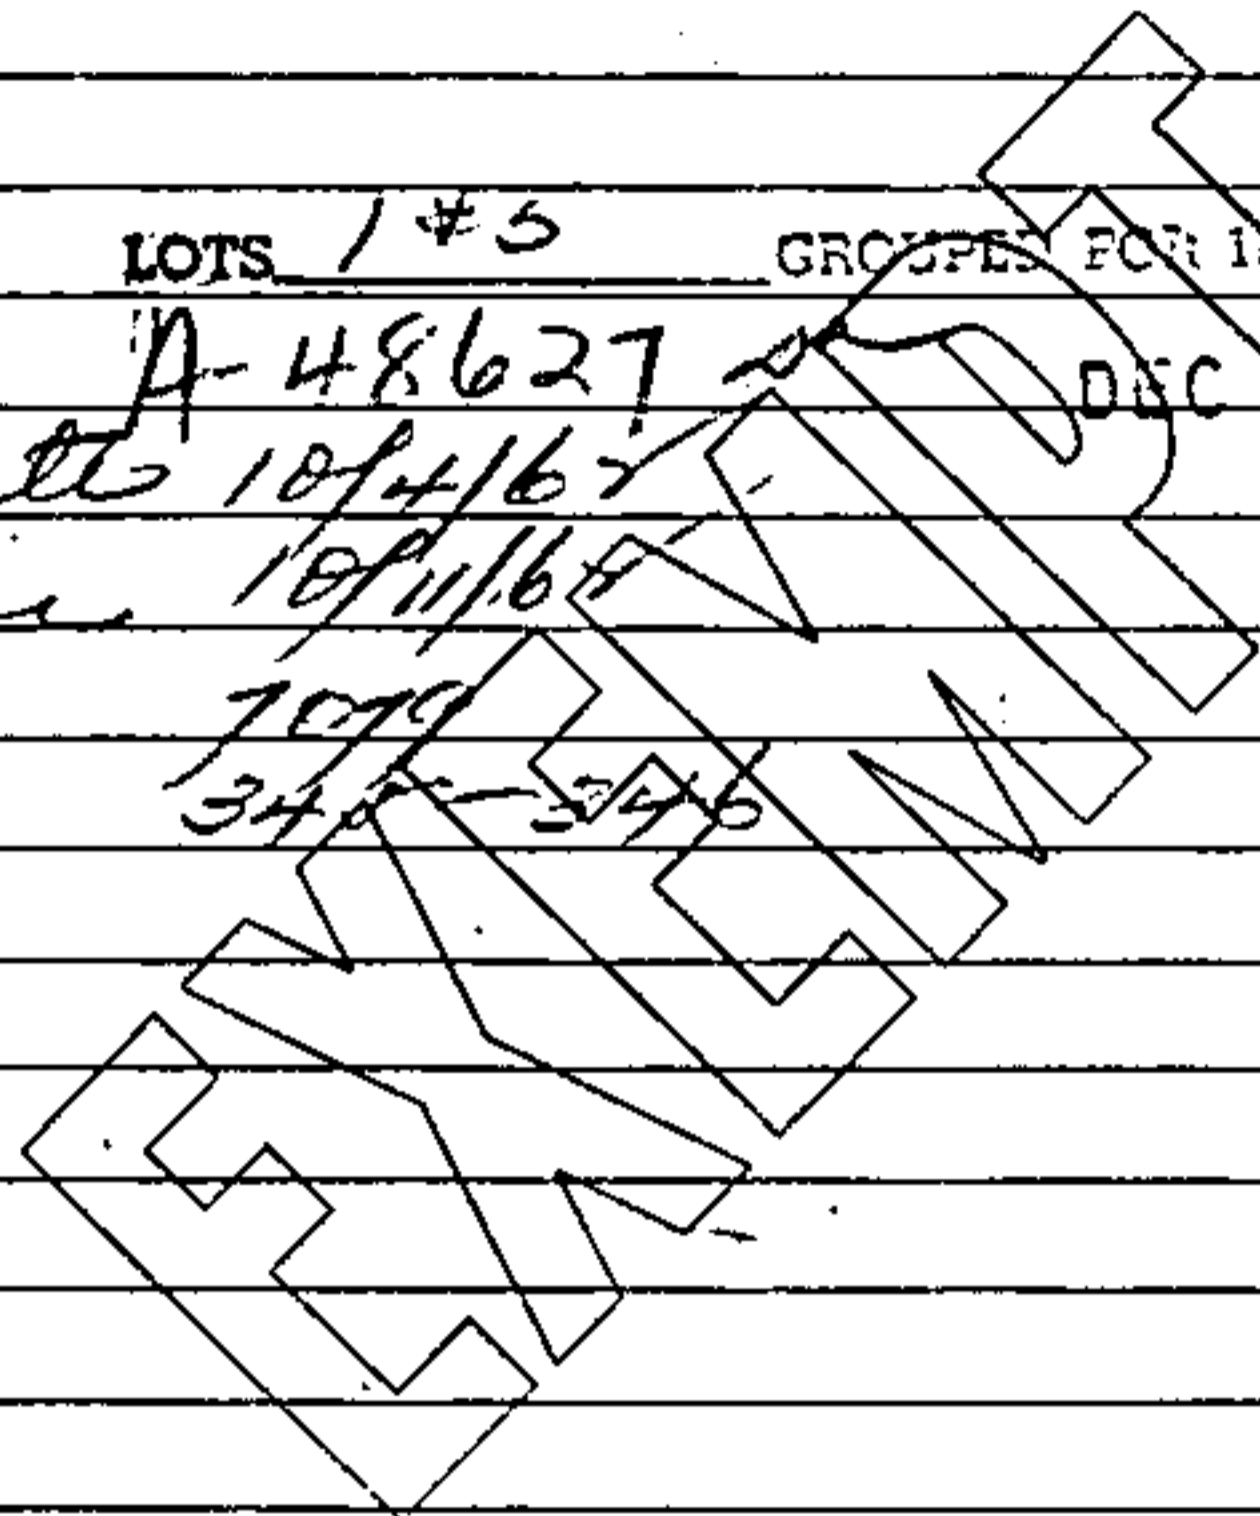 LOTS 1 + 5 GROUPED FOR
A-48627
DEC
10/4/67
10/11/67
1079
345-346
EXEMPT